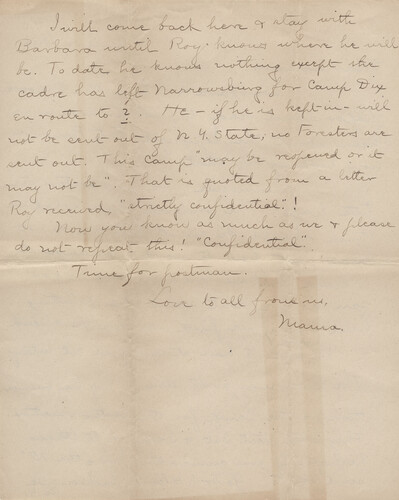 I will come back here & stay with
Barbara until Roy knows where he will
be. To date he knows nothing except the
cadre has left Narrowsburg for Camp Dix
en route to ?. He - if he is kept in - will
not be sent out of N.Y. State; no Foresters are
sent out. This Camp "may be reopened or it
may not be". That is quoted from a letter
Roy received, "strictly confidential"!
Now you know as much as we & please
do not repeat this! "Confidential".
Time for postman.
Love to all from us,
Mama.